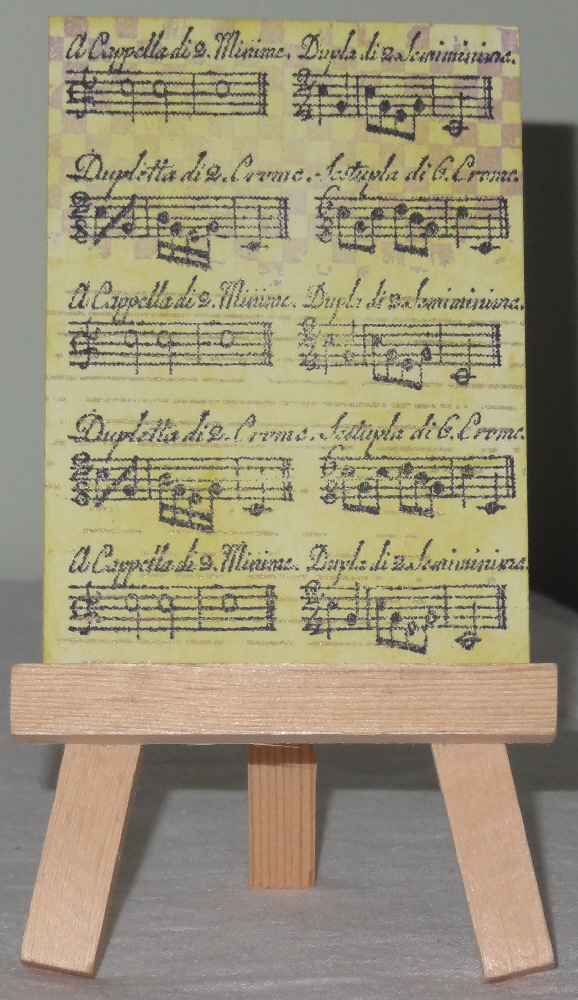 A Cappella di 2. Minime. Dupla di 2 Semiminime.
Dupletta di 2. Crome. Sestupla di 6. Crome.
A Cappella di 2. Minime. Dupla di 2 Semiminime.
Dupletta di 2. Crome. Sestupla di 6. Crome.
A Cappella di 2. Minime. Dupla di 2 Semiminime.